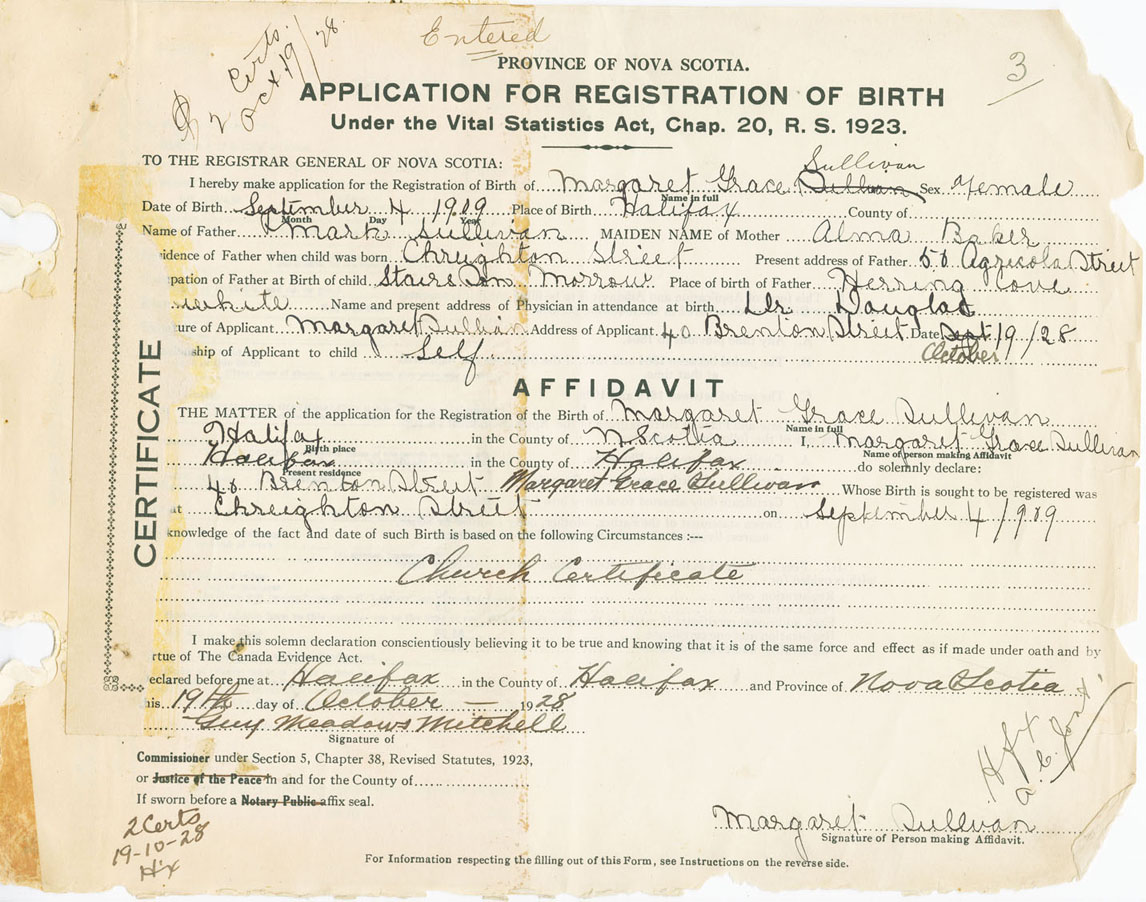 2 Certs.
Oct 19/28
Entered
3
PROVINCE OF NOVA SCOTIA.
APPLICATION FOR REGISTRATION OF BIRTH
Under the Vital Statistics Act, Chap. 20, R. S. 1923.
TO THE REGISTRAR GENERAL OF NOVA SCOTIA:
Sullivan
I hereby make application for the Registration of Birth of Margaret Grace Sullivan Sex Female
Name in full
Date of Birth September 4 1909 Place of Birth Halifax County of
Month Day Year
Name of Father Mark Sullivan MAIDEN NAME of Mother Alma Baker
idence of Father when child was born Chreighton Street Present address of Father 50 Agricola Street
pation of Father at Birth of child Stairs Son Morrow Place of birth of Father Herring Cove
white Name and present address of Physician in attendance at birth Dr Douglas
ure of Applicant Margaret Sullivan Address of Applicant 40 Brenton Street Date Sept 19/28
October
ship of Applicant to child Self
CERTIFICATE
AFFIDAVIT
THE MATTER of the application for the Registration of the Birth of Margaret Grace Sullivan
Name in full
Halifax in the County of N Scotia I, Margaret Grace Sullivan
Birth place Name of person making Affidavit
Halifax in the County of Halifax do solemnly declare:
Present residence
40 Brenton Street Margaret Grace Sullivan Whose Birth is sought to be registered was
at Chreighton Street on September 4/1909
knowledge of the fact and date of such Birth is based on the following Circumstances :---
Church Certificate
I make this solemn declaration conscientiously believing it to be true and knowing that it is of the same force and effect as if made under oath and by
rtue of The Canada Evidence Act.
eclared before me at Halifax in the County of Halifax and Province of Nova Scotia
his 19th day of October — 1928
Guy Meadows Mitchell
Signature of
Commissioner under Section 5, Chapter 38, Revised Statutes, 1923,
or Justice of the Peace in and for the County of
If sworn before a Notary Public affix seal.
2 Certs
19-10-28
Hx
Hfx
Margaret Sullivan
Signature of Person making Affidavit.
For Information respecting the filling out of this Form, see Instructions on the reverse side.